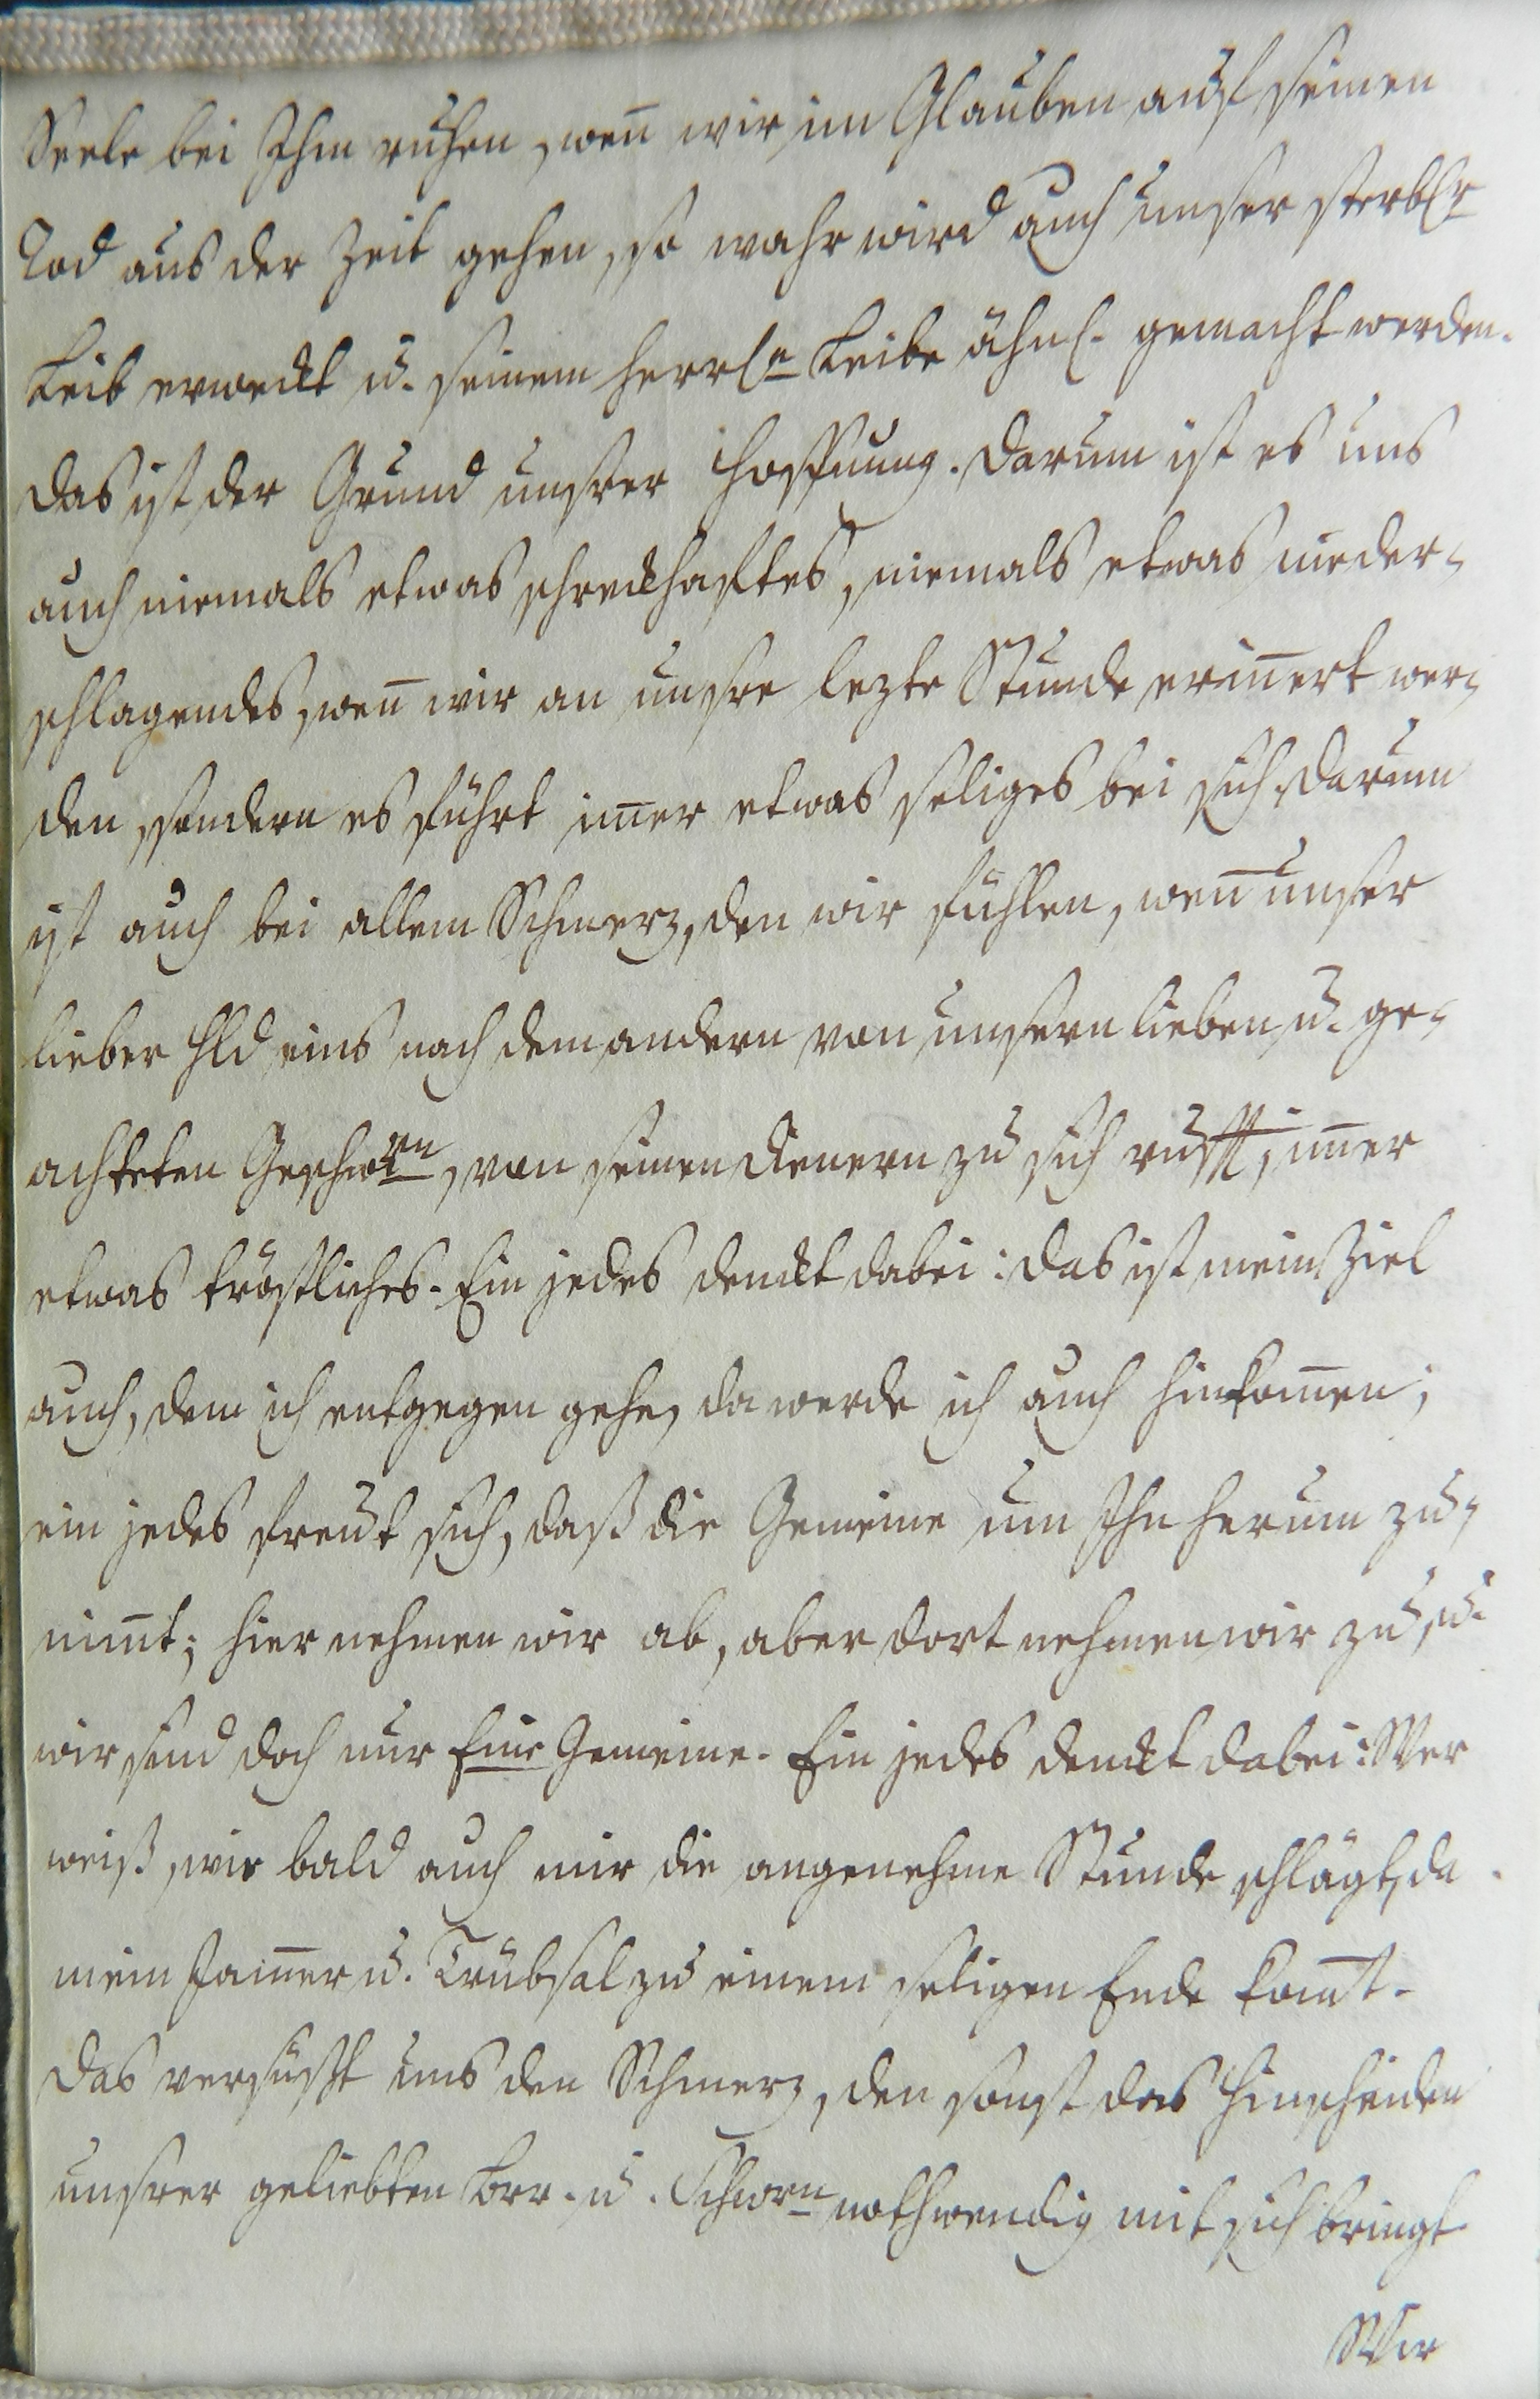 Seele bei Ihm ruhen, weñ wir im Glauben auf seinen
Tod aus der Zeit gehen, so wahr wird auch unser sterblr
Leib erwekt u. seinem herrln Leibe ähnl. gemacht werden.
Das ist der Grund unsrer Hoffnung. Darum ist es uns
auch niemals etwas schrekhaftes, niemals etwas nieder-
schlagendes, weñ wir an unsre lezte Stunde erin̄ert wer-
den, sondern es führt im̄er etwas seliges bei sich. Darum
ist auch bei allem Schmerz, den wir fühlen, weñ unser
lieber Hld eins nach dem andern von unsern lieben u. ge-
achteten Geschwrn, von seinen Dienern zu sich ruft, im̄er
etwas tröstliches. Ein jedes denkt dabei: das ist mein Ziel
auch, dem ich entgegen gehe, da werde ich auch hinkom̄en;
ein jedes freut sich, daß die Gemeine um Ihn herum zu-
nim̄t; hier nehmen wir ab, aber dort nehmen wir zu, u.
wir sind doch nur Eine Gemeine. Ein jedes denkt dabei: Wer
weiß, wie bald auch mir die angenehme Stunde schlägt, da
mein Jam̄er u. Trübsal zu einem seligen Ende kom̄t.
Das versüßt uns den Schmerz, den sonst das Hinscheiden
unsrer geliebten Brr. u. Schwrn nothwendig mit sich bringt.
Wir